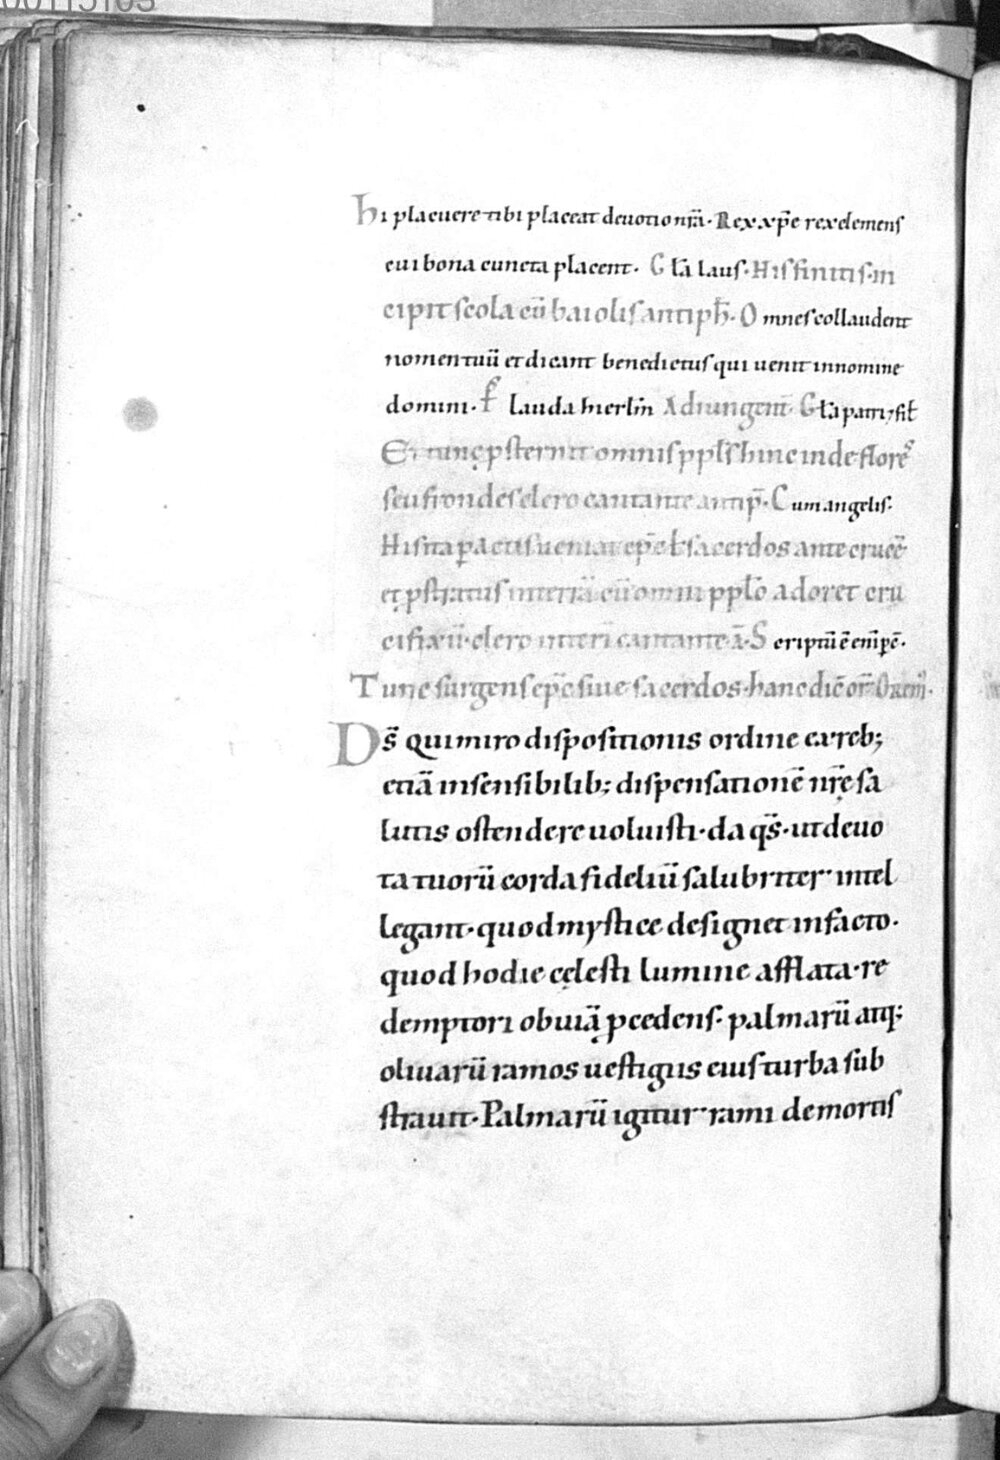 00115103
hi placuere tibi placeat deuotio nr̄a. Rex xp̄e rex clemens
cui bona cuncta placent. Gl̄a laus. His finitis in
cipit scola cū baiolis antiph̄. Omnes collaudent
nomen tuū et dicant benedictus qui uenit in nomine
domini. Lauda hierl̄m Adiungent̄ Gl̄a patri ⁊ fil̄
Et tunc p̄sternit omnis ppl̄s hinc inde flores
seu frondes clero cantante antip̄. Cum angelis.
His ita ꝑactis ueniat ep̄c ł sacerdos ante crucē
et p̄stratus in terrā cū omni ppl̄o adoret cru
cifixū. clero interī cantante ā. Scriptū ē enī ꝑc̄.
Tunc surgens ep̄c siue sacerdos. hanc dic̄ or̄. Orem̄.
Ds̄ qui miro dispositionis ordine ex reb;
etiā insensibilib; dispensationē nr̄ę sa
lutis ostendere uoluisti. da qs̄. ut deuo
ta tuorū corda fideliū salubriter intel
legant. quod mystice designet in facto.
quod hodie cęlesti lumine afflata. re
demptori obuiā p̄cedens. palmarū atq;
oliuarū ramos uestigiis eius turba sub
strauit. Palmarū igitur rami de mortis